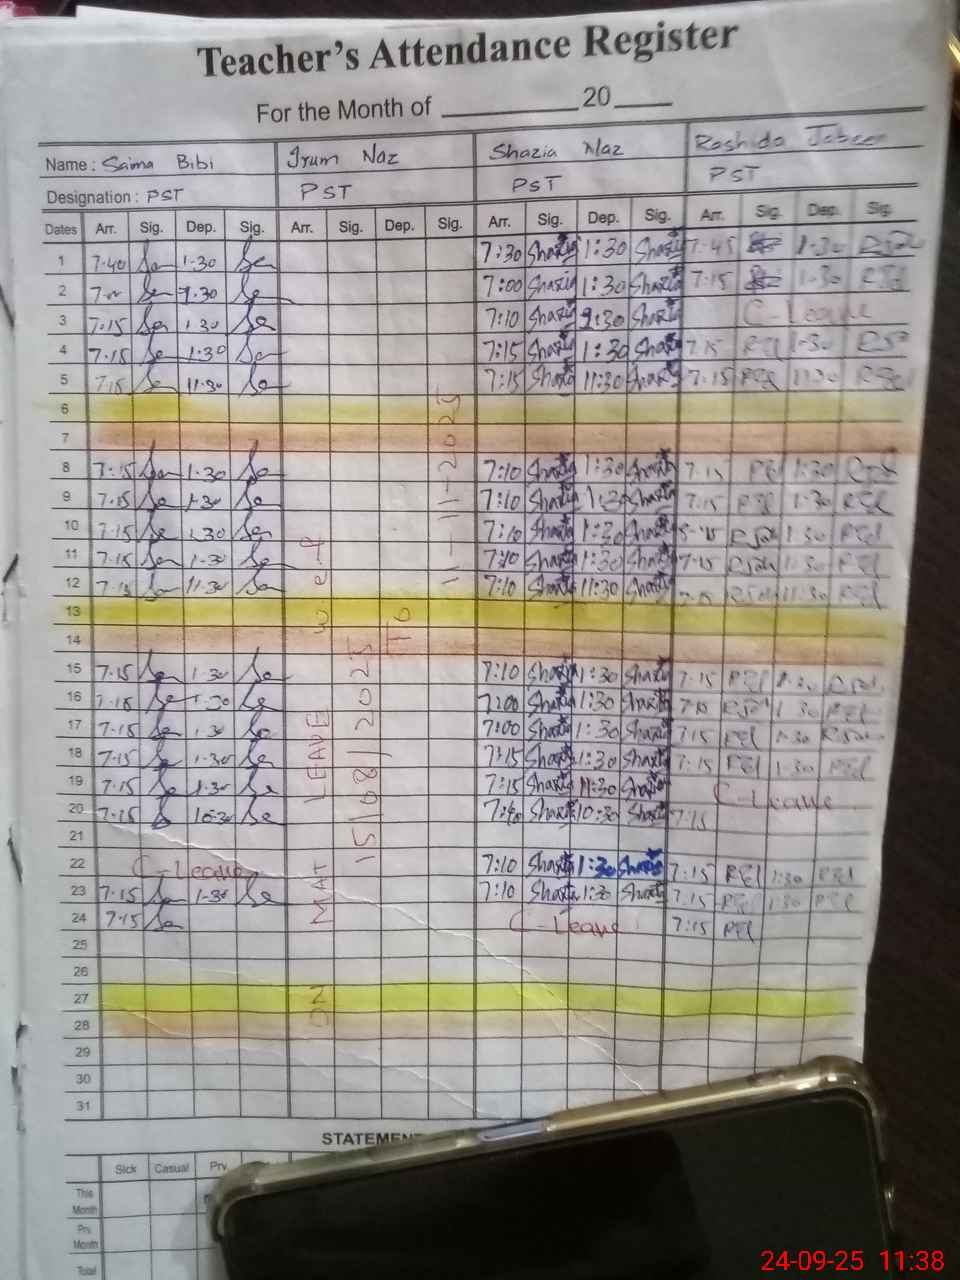 Teacher's Attendance Register
For the Month of ____________ 20_____
Name : Saima Bibi Irum Naz Shazia Naz Rashida Jabeen
Designation : PST PST PST PST
Dates Arr. Sig. Dep. Sig. Arr. Sig. Dep. Sig. Arr. Sig. Dep. Sig. Arr. Sig. Dep. Sig.
1 7.40 1.30 7:30 Shazia 1:30 Shazia 7.45 1-30
2 7:00 Shazia 1:30 Shazia 7.15 1-30
3 7.15 1.30 7:10 Shazia Shazia C-Leave
4 7.15 1:30 7:15 Shazia 1:30 Shazia 7.15 1-30
5 7.15 11:30 7:15 Shazia 11:30 Shazia 7.15 11:30
6
7
8 7:15 1.30 7:10 Shazia 1:30 Shazia 7.15 1:30
9 7.15 1.30 7:10 Shazia 1:30 Shazia 7.15 1-30
10 7.15 1.30 7:10 Shazia 1:30 Shazia 1.30
11 7.15 1-30 7:10 Shazia 1:30 Shazia 7.15 1:30
12 7.15 11.30 7:10 Shazia 11:30 Shazia 7.15 11:30
13
14
15 7.15 1-30 7:10 Shazia 1:30 Shazia 7.15
16 7.15 1.30 7:00 Shazia 1:30 Shazia 7.15 1.30
17 7.15 1.30 7:00 Shazia 1:30 Shazia 7.15 1.30
18 7.15 1.30 7:15 Shazia 1:30 Shazia 7.15 1.30
19 7.15 1.30 7:15 Shazia Shazia C-Leave
20 7.15 10.30 Shazia 10:30 Shazia 7.15
21
22 C-Leave 7:10 Shazia 1:30 Shazia 7.15 1:30
23 7.15 1-30 7:10 Shazia 1:30 Shazia 7.15 1:30
24 7.15 C-Leave 7:15
25
26
27
28
29
30
31
ON MAT LEAVE w.e.f
15/08/2025 To
11-11-2025
STATEMEN
Sick Casual Prv.
This Month
Prv. Month
Total
24-09-25 11:38